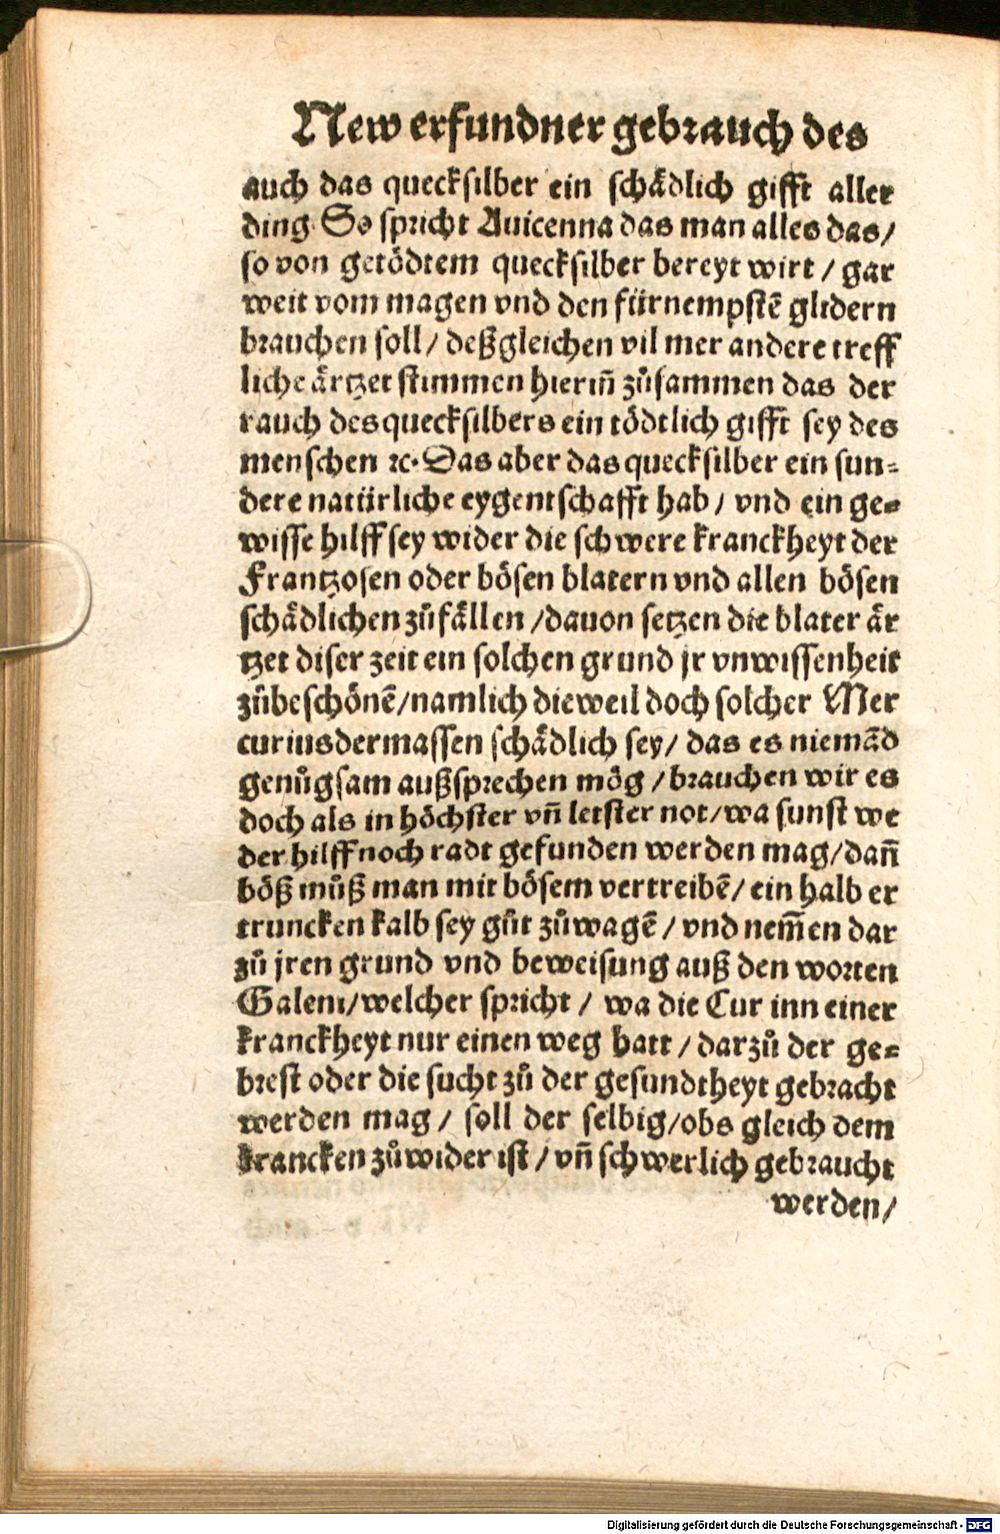 New erfundner gebrauch des
auch das quecksilber ein schådlich gifft aller
ding So spricht Auicenna das man alles das/
so von getödtem quecksilber bereyt wirt / gar
weit vom magen vnd den fürnempstẽ glidern
brauchen soll / deßgleichen vil mer andere treff
liche årtzet stimmen hieriñ zůsammen das der
rauch des quecksilbers ein tödtlich gifft sey des
menschen ꝛc. Das aber das quecksilber ein sun-
dere natürliche eygentschafft hab / vnd ein ge-
wisse hilff sey wider die schwere kranckheyt der
Frantzosen oder bösen blatern vnd allen bösen
schådlichen zůfållen /dauon setzen die blater år
tzet diser zeit ein solchen grund jr vnwissenheit
zůbeschönẽ/namlich dieweil doch solcher Mer
curius dermassen schådlich sey / das es niemãd
genůgsam außsprechen mög / brauchen wir es
doch als in höchster vñ letster not/wa sunst we
der hilff noch radt gefunden werden mag/dañ
böß můß man mit bösem vertreibẽ/ ein halb er
truncken kalb sey gůt zůwagẽ / vnd nem̃en dar
zů jren grund vnd beweisung auß den worten
Galeni/welcher spricht / wa die Cur inn einer
kranckheyt nur einen weg hatt / darzů der ge-
brest oder die sucht zů der gesundtheyt gebracht
werden mag / soll der selbig/obs gleich dem
krancken zůwider ist / vñ schwerlich gebraucht
werden/
Digitalisierung gefördert durch die Deutsche Forschungsgemeinschaft - DFG